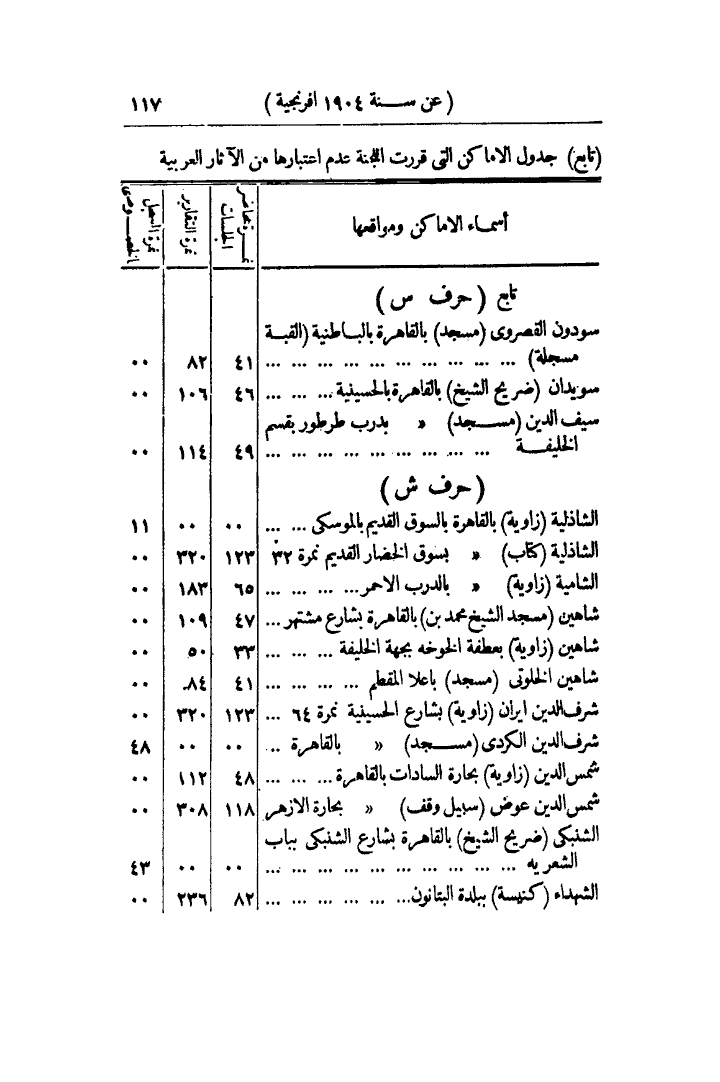 (عن سنة ١٩٠٤ افرنجية) ١١٧
(تابع) جدول الاماكن التى قررت اللجنة عدم اعتبارها من الآثار العربية
أسماء الاماكن ومواقعها | نمرة محاضر الجلسات | نمرة التقارير | نمرة السجل الخصوصى
تابع (حرف س)
سودون القصروى (مسجد) بالقاهرة بالباطنية (القبة
مسجلة) ... ... ... ... ... ... ... ... ... ٤١ ٨٢ ٠٠
سويدان (ضريح الشيخ) بالقاهرة بالحسينية ... ... ... ٤٦ ١٠٦ ٠٠
سيف الدين (مسجد) » بدرب طرطور بقسم
الخليفة ... ... ... ... ... ... ... ... ... ٤٩ ١١٤ ٠٠
(حرف ش)
الشاذلية (زاوية) بالقاهرة بالسوق القديم بالموسكى ... ... ٠٠ ٠٠ ١١
الشاذلية (كتاب) » بسوق الخضار القديم نمرة ٣٢ ١٢٣ ٣٢٠ ٠٠
الشامية (زاوية) » بالدرب الاحمر ... ... ... ... ٦٥ ١٨٣ ٠٠
شاهين (مسجد الشيخ محمد بن) بالقاهرة بشارع مشتهر ... ٤٧ ١٠٩ ٠٠
شاهين (زاوية) بعطفة الخوخه بجهة الخليفة ... ... ... ٣٣ ٥٠ ٠٠
شاهين الخلوتى (مسجد) باعلا المقطم ... ... ... ... ٤١ ٨٤ ٠٠
شرف الدين ايران (زاوية) بشارع الحسينية نمرة ٦٤ ... ١٢٣ ٣٢٠ ٠٠
شرف الدين الكردى (مسجد) » بالقاهرة .. ٠٠ ٠٠ ٤٨
شمس الدين (زاوية) بحارة السادات بالقاهرة ... ... ... ٤٨ ١١٢ ٠٠
شمس الدين عوض (سبيل وقف) » بحارة الازهر ١١٨ ٣٠٨ ٠٠
الشنبكى (ضريح الشيخ) بالقاهرة بشارع الشنبكى بباب
الشعريه ... ... ... ... ... ... ... ... ... ٠٠ ٠٠ ٤٣
الشهداء (كنيسة) ببلدة البتانون ... ... ... ... ... ... ٨٢ ٢٣٦ ٠٠